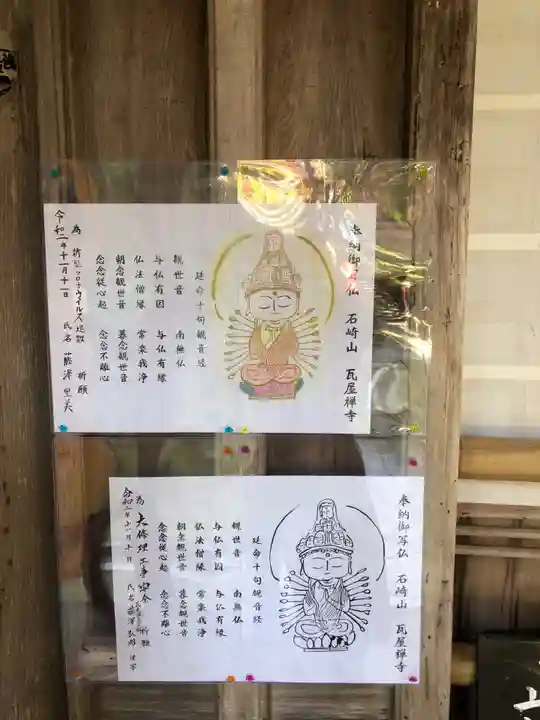 奉納御写仏 石崎山 瓦屋禅寺
延命十句観音経
観世音 南無仏
与仏有因 与仏有縁
仏法僧縁 常楽我浄
朝念観世音 暮念観世音
念念従心起 念念不離心
為 新型コロナウイルス退散 祈願
令和二年十一月十一日 氏名
奉納御写仏 石崎山 瓦屋禅寺
延命十句観音経
観世音 南無仏
与仏有因 与仏有縁
仏法僧縁 常楽我浄
朝念観世音 暮念観世音
念念従心起 念念不離心
為 大修理工事 祈願
氏名